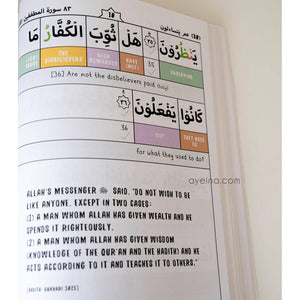 ٨٣ سورة المطففين
(٣٠) عم يتساءلون
يَنظُرُونَ ٣٥ هَلْ ثُوِّبَ الْكُفَّارُ مَا
35
OBSERVING
HAVE (NOT)
BEEN REWARDED
THE DISBELIEVERS
[36] Are not the disbelievers paid (fully)
كَانُوا يَفْعَلُونَ ٣٦
36
THEY USED TO
DO?
for what they used to do?
ayeina.com
ALLAH'S MESSENGER ﷺ SAID, "DO NOT WISH TO BE
LIKE ANYONE, EXCEPT IN TWO CASES:
(1) A MAN WHOM ALLAH HAS GIVEN WEALTH AND HE
SPENDS IT RIGHTEOUSLY.
(2) A MAN WHOM ALLAH HAS GIVEN WISDOM
(KNOWLEDGE OF THE QUR'AN AND THE HADITH) AND HE
ACTS ACCORDING TO IT AND TEACHES IT TO OTHERS."
[HADITH BUKHARI 1025]